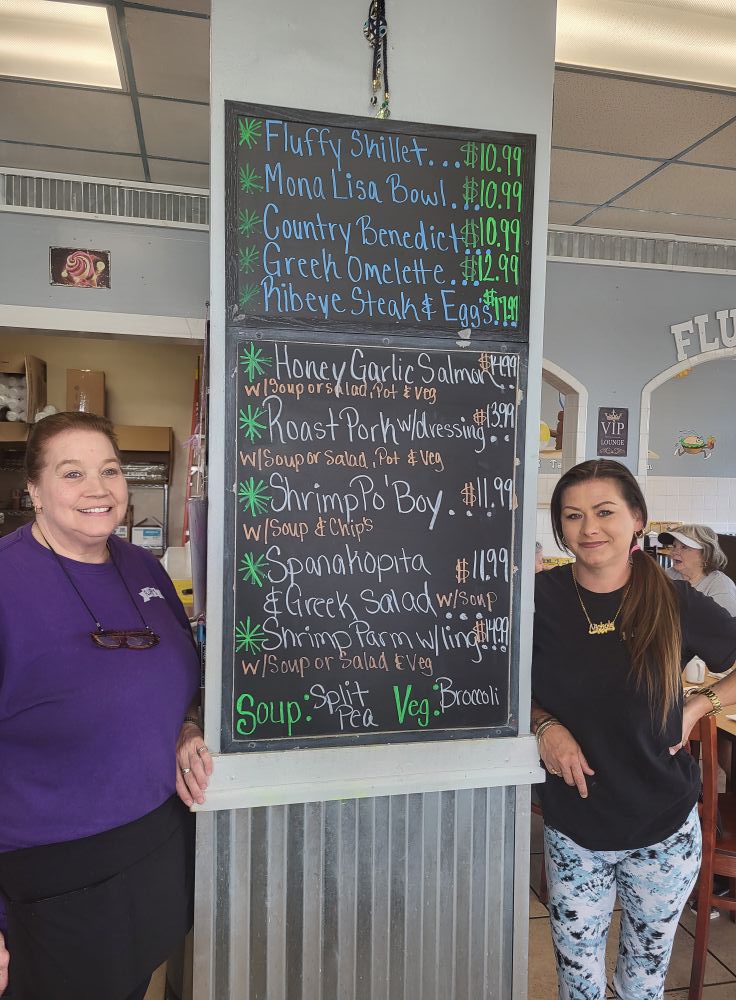 * Fluffy Skillet... $10.99
* Mona Lisa Bowl... $10.99
* Country Benedict... $10.99
* Greek Omelette... $12.99
* Ribeye Steak & Eggs... $17.99
* Honey Garlic Salmon $14.99
w/Soup or Salad, Pot & Veg
* Roast Pork w/dressing $13.99
w/Soup or Salad, Pot & Veg
* Shrimp Po'Boy... $11.99
w/Soup & Chip's
* Spanakopita $11.99
& Greek Salad w/Soup
* Shrimp Parm w/ling.. $14.99
w/Soup or Salad & Veg
Soup: Split Pea Veg: Broccoli
FLU
VIP
LOUNGE